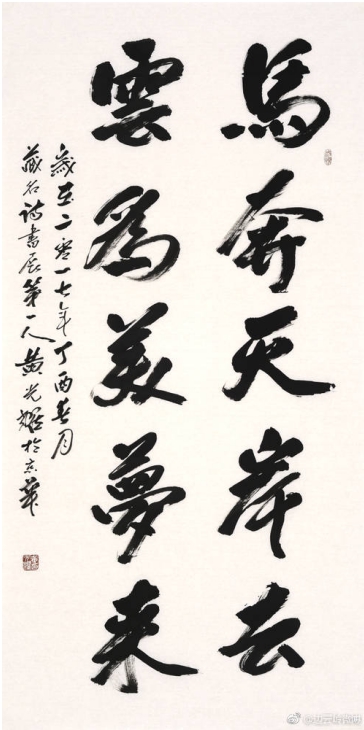 馬奔天岸去
雲為美夢来
歲在二零一七年丁酉春月
藏名詩書展第一人黄光耀於京華